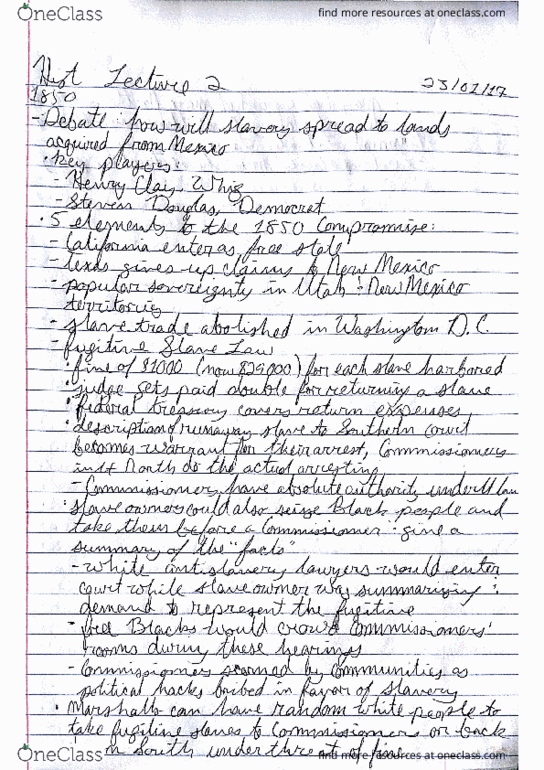 OneClass
find more resources at oneclass.com
Hist Lecture 2 23/01/17
1850
- Debate: how will slavery spread to lands
acquired from Mexico
• Key players:
- Henry Clay, Whig
- Steven Douglas, Democrat
• 5 elements to the 1850 Compromise:
- California enter as free state
- Texas gives up claims to New Mexico
- popular sovereignty in Utah + New Mexico
territories
- slave trade abolished in Washington D.C.
- fugitive Slave Law
• fine of $1000 (now $29000) for each slave harbored
• judge gets paid double for returning a slave
• federal treasury covers return expenses
• description of runaway slave to Southern court
becomes warrant for their arrest, Commissioners
in North do the actual arresting
- Commissioners have absolute authority under law
• slaveowners could also seize Black people and
take them before a Commissioner + give a
summary of the "facts"
- white antislavery lawyers would enter
court while slaveowner was summarizing +
demand to represent the fugitive
- free Blacks would crowd Commissioners'
rooms during these hearings
- Commissioners scorned by communities as
political hacks bribed in favor of slavery
• Marshalls can have random white people to
take fugitive slaves to Commissioners or back
in South under threat of fine
OneClass
find more resources at oneclass.com